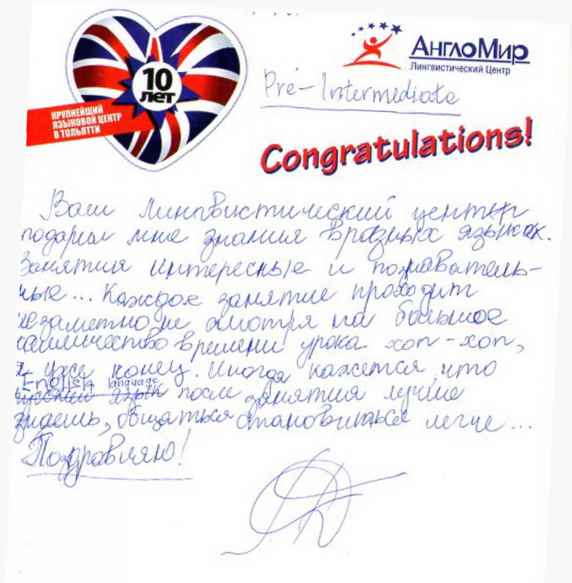 10
ЛЕТ
КРУПНЕЙШИЙ
ЯЗЫКОВОЙ ЦЕНТР
В ТОЛЬЯТТИ
АнглоМир
Лингвистический Центр
Pre-Intermediate
Congratulations!
Ваш Лингвистический центр
подарил мне знания в разных языках.
Занятия интересные и познаватель-
ные... Каждое занятие проходит
незаметно не смотря на большое
количество времени урока хоп-хоп,
и уже конец. Иногда кажется, что
English language
после занятия лучше
знаешь, общаться становиться легче...
Поздравляю!